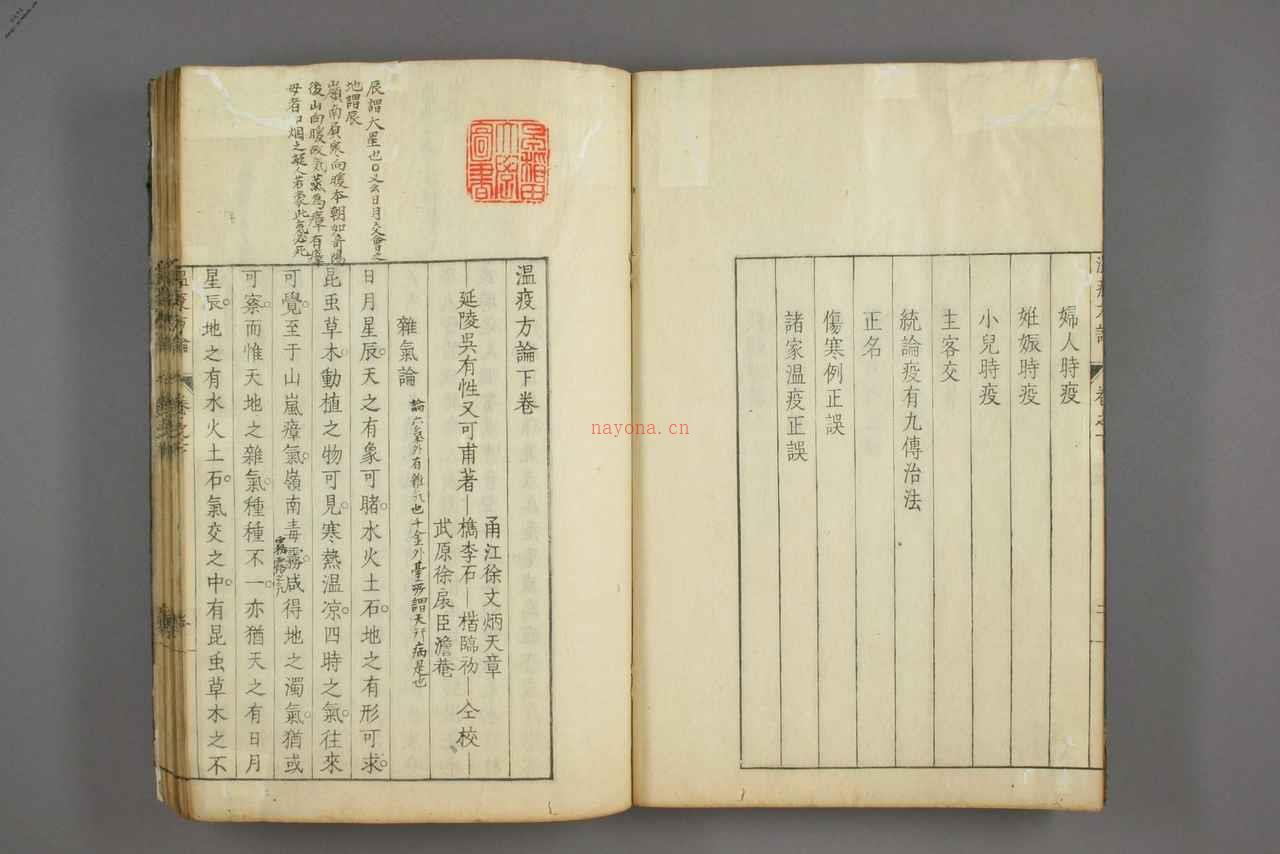 婦人時疫
姙娠時疫
小兒時疫
主客交
統論疫有九傳治法
正名
傷寒例正誤
諸家溫疫正誤
辰謂大星也〇又云日月交會之
地謂辰
溫疫方論下卷
延陵吳有性又可甫著
甬江徐文炳天章
檇李石楷臨初
武原徐展臣澹菴
仝校
雜氣論
論六氣外有雜氣也千金外臺所謂天行病是也
日月星辰。天之有象可睹。水火土石。地之有形可求。
昆虫草木。動植之物可見。寒熱溫凉。四時之氣。往來
可覺。至于山嵐瘴氣。嶺南毒霧。咸得地之濁氣。猶或
可察。而惟天地之雜氣。種種不一。亦猶天之有日月
星辰。地之有水火土石。氣交之中。有昆虫草木之不
nayona.cn